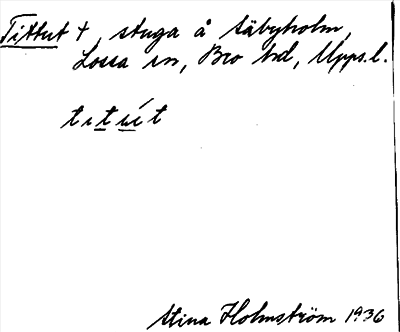 Tittut +, stuga å Säbyholm,
Lossa sn, Bro hd, Upps.l.
Stina Holmström 1936